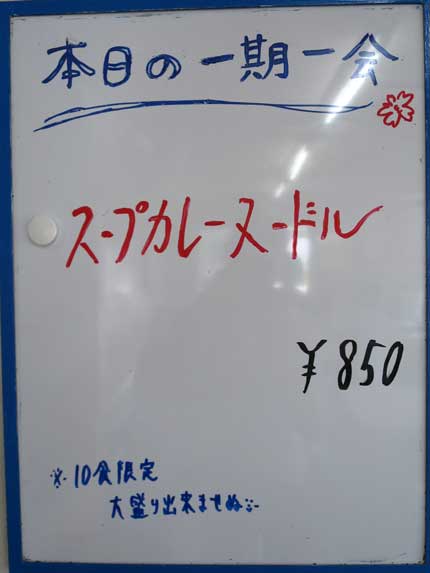 本日の一期一会
スープカレーヌードル
¥850
※10食限定
大盛り出来ませぬ…